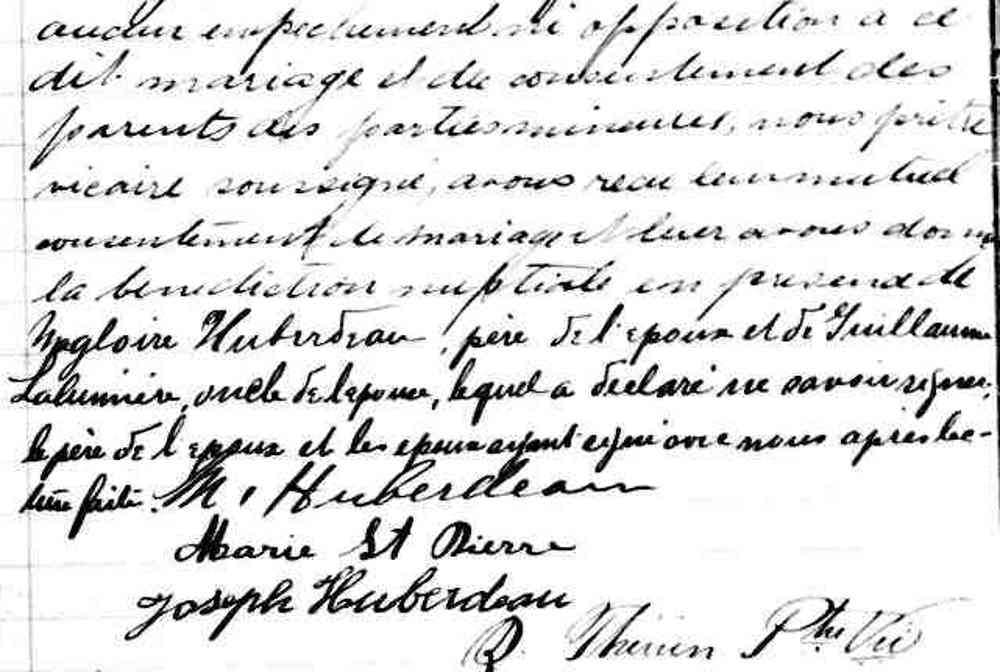 aucun empechement ni opposition a ce
dit mariage et du consentement des
parents des parties mineures, nous prêtre
vicaire soussigné, avons recu leur mutuel
consentement de mariage et leur avons donné
la benediction nuptiale en presence de
Magloire Huberdeau, père de l'epoux et de Guillaume
oncle de l'epouse, lequel a déclaré ne savoir signer,
le père de l'epoux et les epoux ayant signé avec nous après lec-
ture faite. M. Huberdeau
Marie St Pierre
Joseph Huberdeau
Therien Ptre Vic